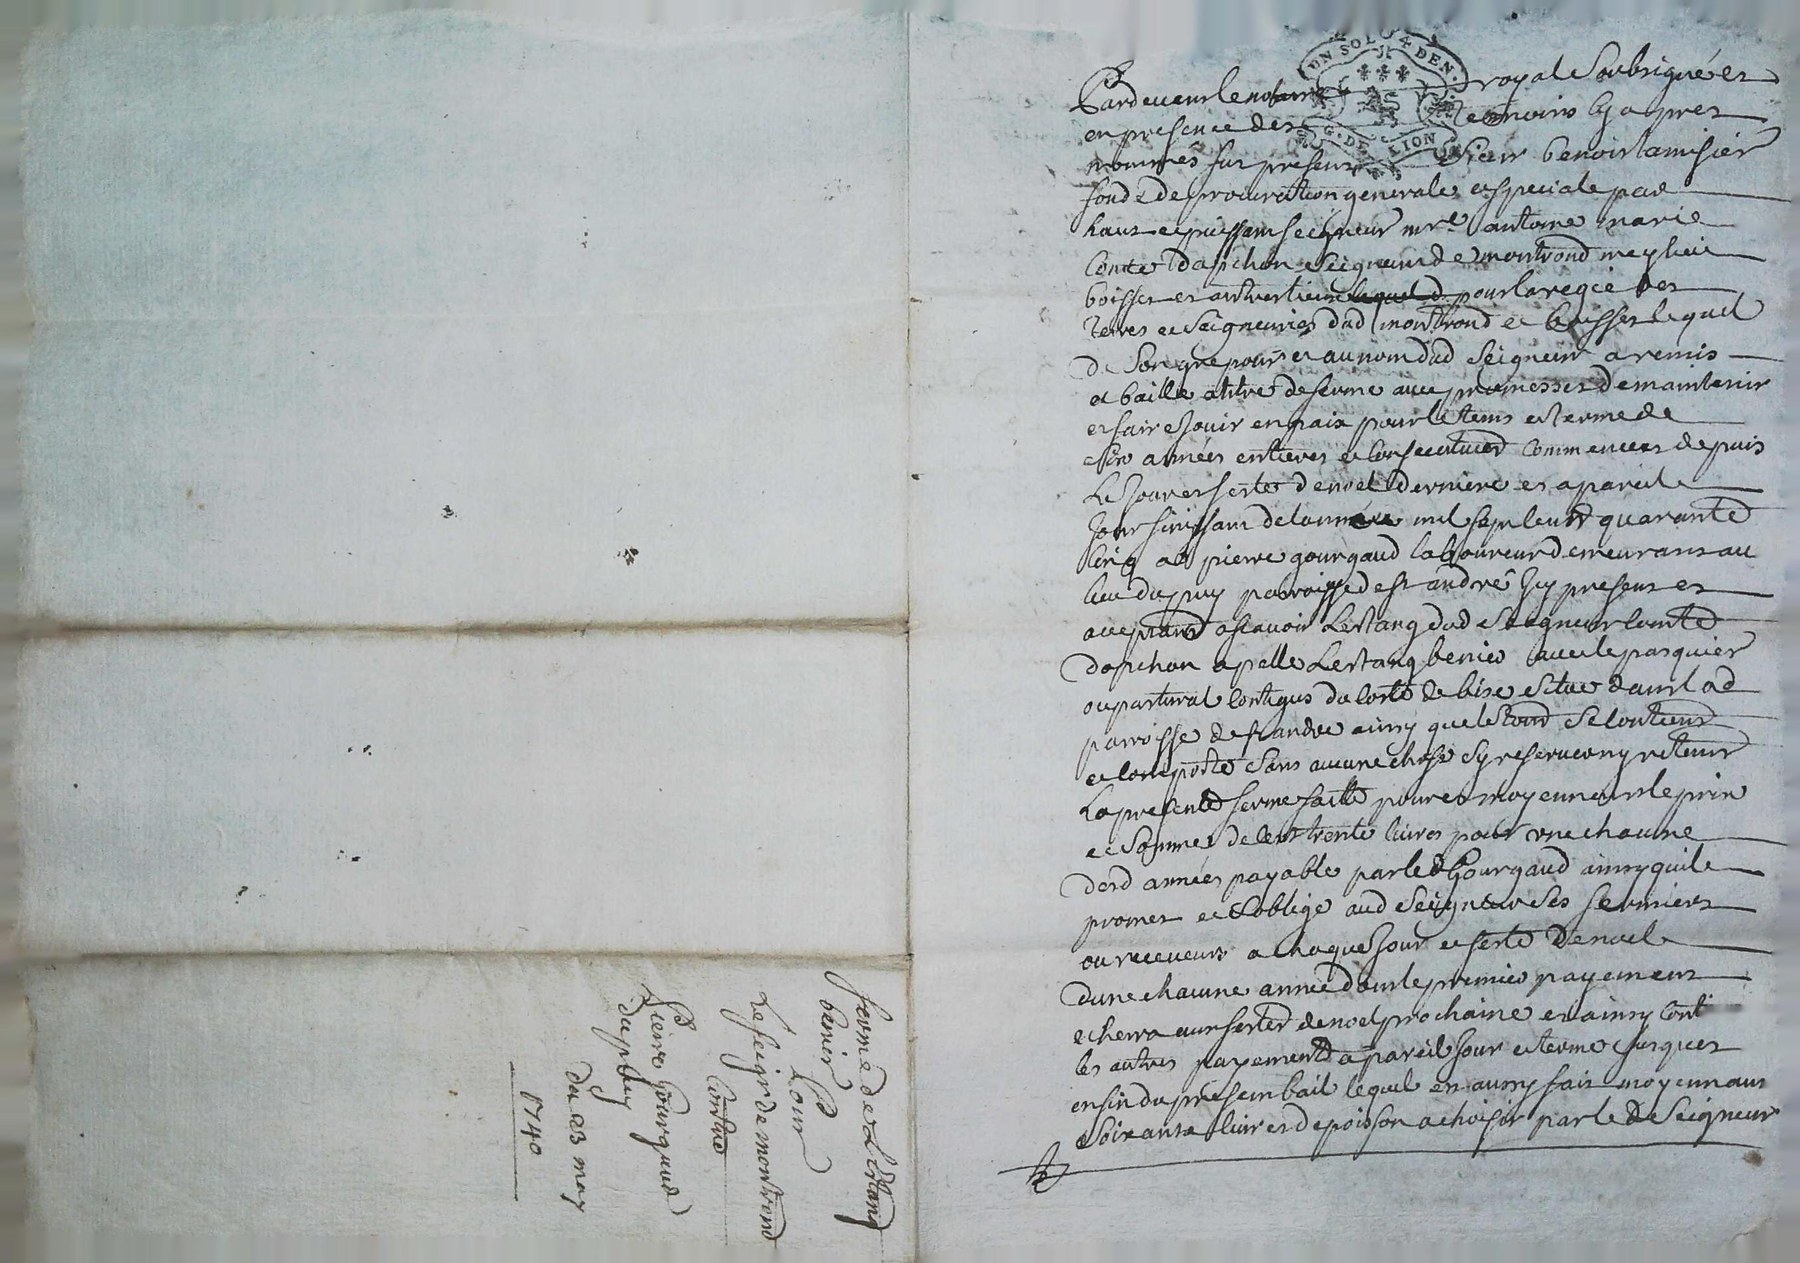 UN SOL 4 DEN.
G. DE LION
Pardevant le notaire royal soubsigné et
en presence des temoins cy apres
nommés fut present Sieur benoist amisier
fondé de procuration generale et speciale par
haut et puissant seigneur mre antoine marie
Comte dapchon Seigneur de montrond
boisset et autres lieux lequel d pour la regie des
terres et Seigneuries dud montrond et boisset lequel
de son gre pour et au nom dud Seigneur a remis
et baillé a titre de ferme avec promesses de maintenir
et faire jouir en paix pour le tems et terme de
six années entieres et consecutives commencees depuis
Le jour et feste de noel derniere et a pareil
jour finissant de lannée mil sept cent quarante
cinq a pierre gourgaud laboureur demeurant au
lieu du puy parroisse de st andré icy present et
acceptant a scavoir Lestang dud Seigneur Comte
dapchon apellé Lestang benier avec le pasquier
ou pastural contigus du coste de bise situé dans lad
parroisse de st andré ainsy que le tout se contient
et comporte sans aucune chose sy reserver ny retenir
La presente ferme faitte pour et moyennant le prix
et Somme de cent trente livres pour une chacune
desd années payable par led Gourgaud ainsy quil
promet et soblige aud Seigneur ses fermiers
ou receveurs a chaque jour et feste de noel
dune chacune année dont le premier payement
echerra aux festes de noel prochaine et ainsy cont
les autres payements a pareil jour et terme jusques
en fin du present bail lequel est aussy fait moyennant
Soixante livres de poisson a choisir par led Seigneur
ferme de Lestang
benier
Pour
Le seigr de montrond
Contre
Pierre Gourgaud
du puy
du 23 may
1740